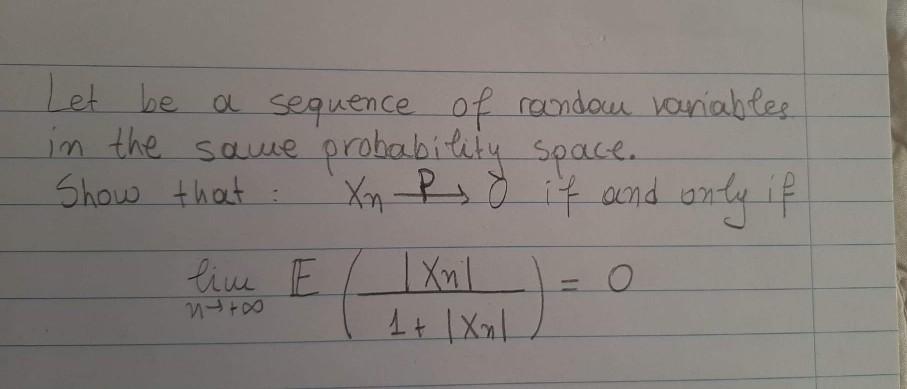 Let be a sequence of random variables
in the same probability space.
Show that : Xn —P→ 0 if and only if
lim n→+∞ 𝔼 ( |Xn| / 1 + |Xn| ) = 0